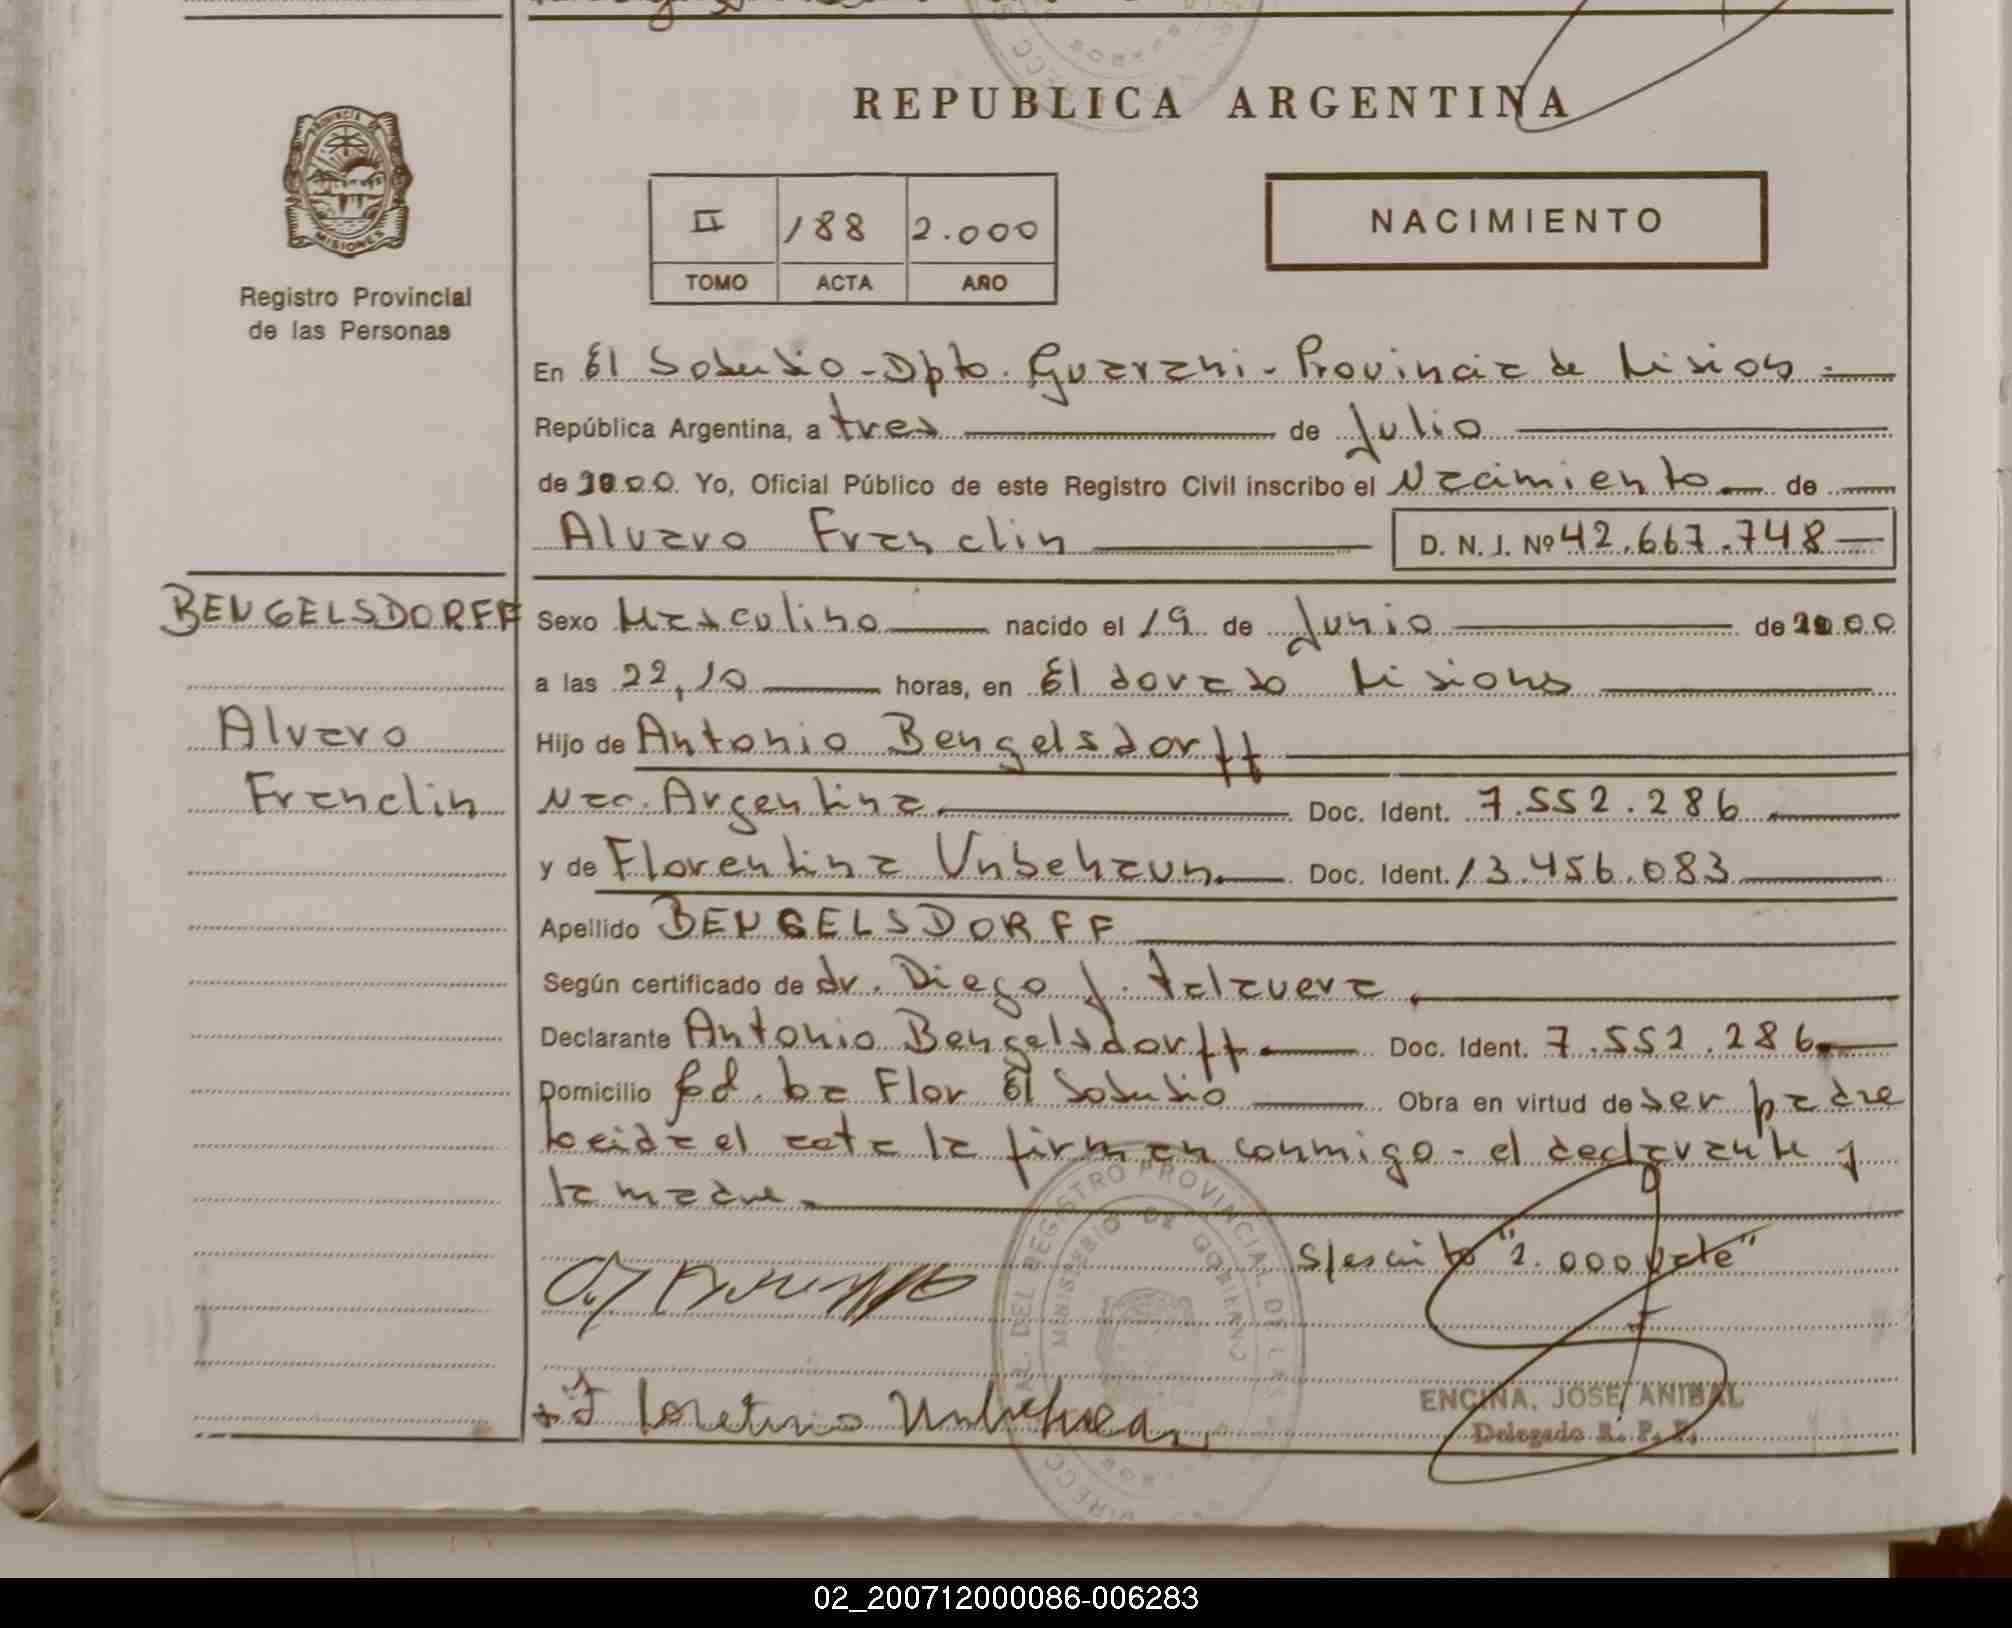 REPUBLICA ARGENTINA
PROVINCIA DE
MISIONES
Registro Provincial
de las Personas
II 188 2.000
TOMO ACTA AÑO
NACIMIENTO
En El Soberbio - Dpto. Guarani - Provincia de Misiones.
República Argentina, a tres de Julio
de 2000 Yo, Oficial Público de este Registro Civil inscribo el Nacimiento de
Alvaro Franclin D. N. I. Nº 42.667.748
BENGELSDORFF
Alvaro
Franclin
Sexo Masculino nacido el 19 de Junio de 2000
a las 22,10 horas, en El dorado Misiones
Hijo de Antonio Bengelsdorff
Nac. Argentina. Doc. Ident. 7.552.286
y de Florentina Unbehaun. Doc. Ident. 13.456.083
Apellido BENGELSDORFF
Según certificado de dr. Diego J. Talavera
Declarante Antonio Bengelsdorff Doc. Ident. 7.552.286
Domicilio La Flor El Soberbio Obra en virtud de ser padre
Leida el acta la firman conmigo - el declarante y
la madre.
S/escrito "2.000 Vale"
DIRECC DEL REGISTRO PROVINCIAL DE LAS
MINISTERIO DE GOBIERNO
ENCINA, JOSE ANIBAL
Delegado R. P. P.
02_200712000086-006283